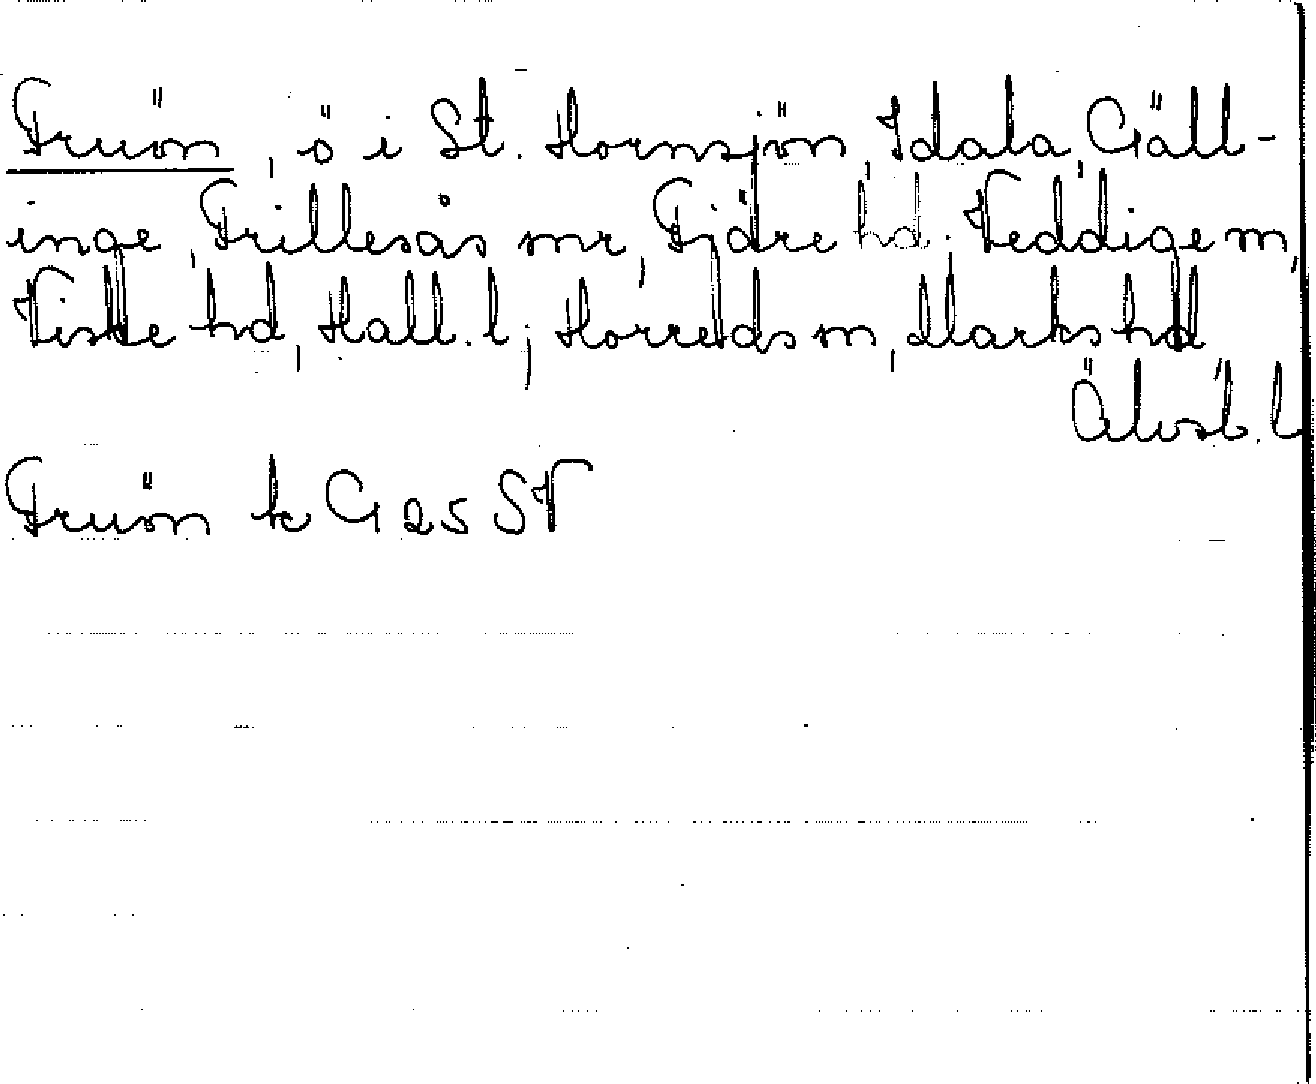 Fruön, ö i St. Hornsjön, Idala, Gäll-
inge, Frillesås snr, Fjäre hd. Veddige sn,
Viske hd, Hall. l; Horreds sn, Marks hd
Älvsb. l
Fruön tc G 25 SV